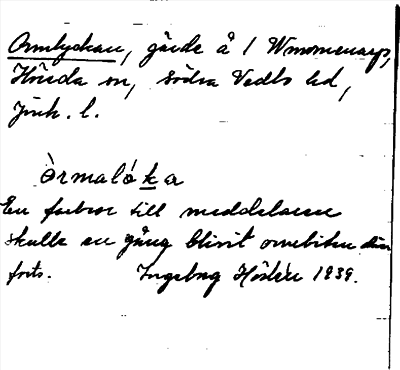 Ormlyckan, gärde å 1 Wmmenarp,
Hörda sn, södra Vedbo hd,
Jönk. l.
òrmalókа
En farbror till meddelaren
skulle en gång blivit ormbiten där
forts. Ingeborg Höslér 1939.